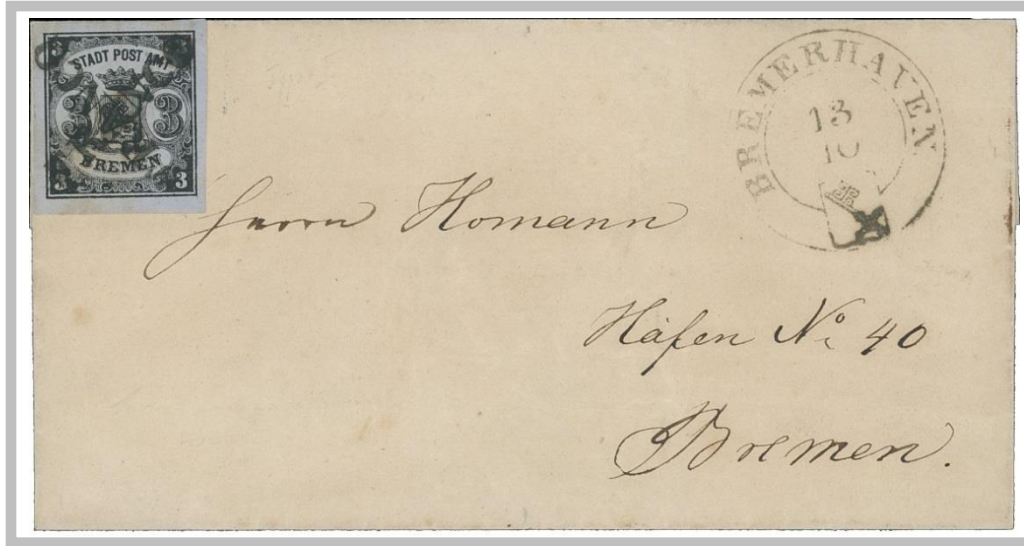 3
STADT POST AMT
3 3
BREMEN
3 3
BREMERHAVEN
13
10
Herrn Homann
Hafen No. 40
Bremen.